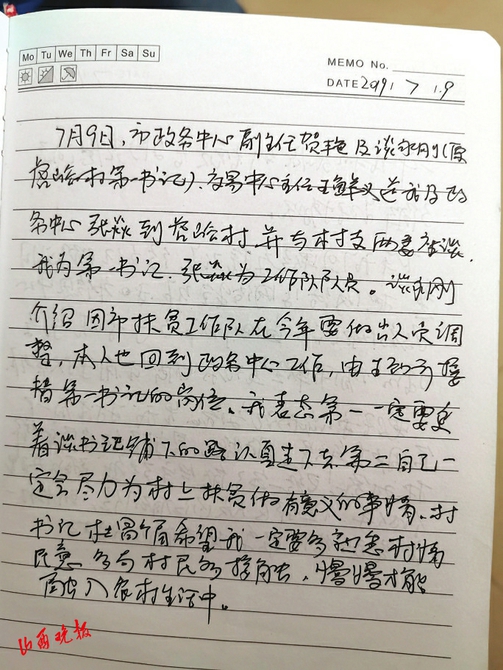 Mo Tu We Th Fr Sa Su
MEMO No.
DATE 2019 / 7 / 9
7月9日,市政务中心副主任贺艳及谈永刚(原
村第一书记)、交易中心主任王鲜义送我及政
务中心张焱到村,并与村支两委座谈,
我为第一书记,张焱为工作队队员。谈永刚
介绍因市扶贫工作队在今年要做出人员调
整,本人也回到政务中心工作,由王
替第一书记的岗位。我表态第一一定要
着谈书记铺下的路认真走下去第二自己一
定会尽力为村上扶贫做有意义的事情。村
书记杜希望我一定要多知悉村情
民意多与村民多接触,慢慢才能
融入农村生活中。
山西晚报